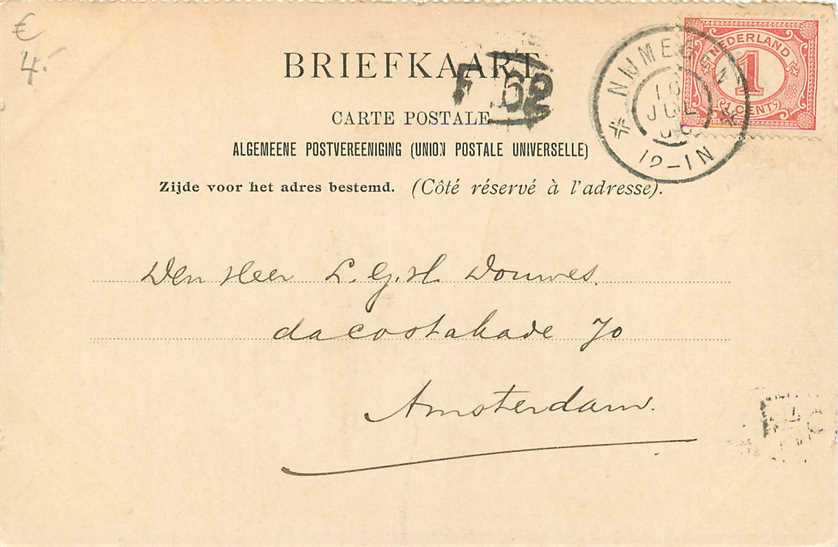 €
4.-
BRIEFKAART
CARTE POSTALE
ALGEMEENE POSTVEREENIGING (UNION POSTALE UNIVERSELLE)
Zijde voor het adres bestemd. (Côté réservé à l'adresse).
NEDERLAND
1
1 CENT
NIJMEGEN
JUL
12-1N
Den Heer L. G. H. Douwes.
dacostakade 70
Amsterdam.